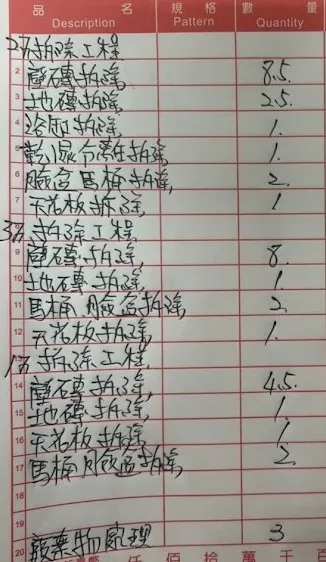 品 名 規 格 數 量
Description Pattern Quantity
2F拆除工程
2 壁磚拆除, 8.5.
3 地磚拆除, 2.5.
4 浴缸拆除, 1.
5 乾濕分離拆除, 1.
6 臉盆馬桶拆除, 2.
7 天花板拆除, 1
3F拆除工程,
9 壁磚拆除, 8.
10 地磚拆除, 1.
11 馬桶臉盆拆除, 2
12 天花板拆除, 1.
1F拆除工程
14 壁磚拆除, 4.5.
15 地磚拆除, 1.
16 天花板拆除, 1.
17 馬桶臉盆拆除, 2.
18
19
20 廢棄物處理 3
仟 佰 拾 萬 千 百